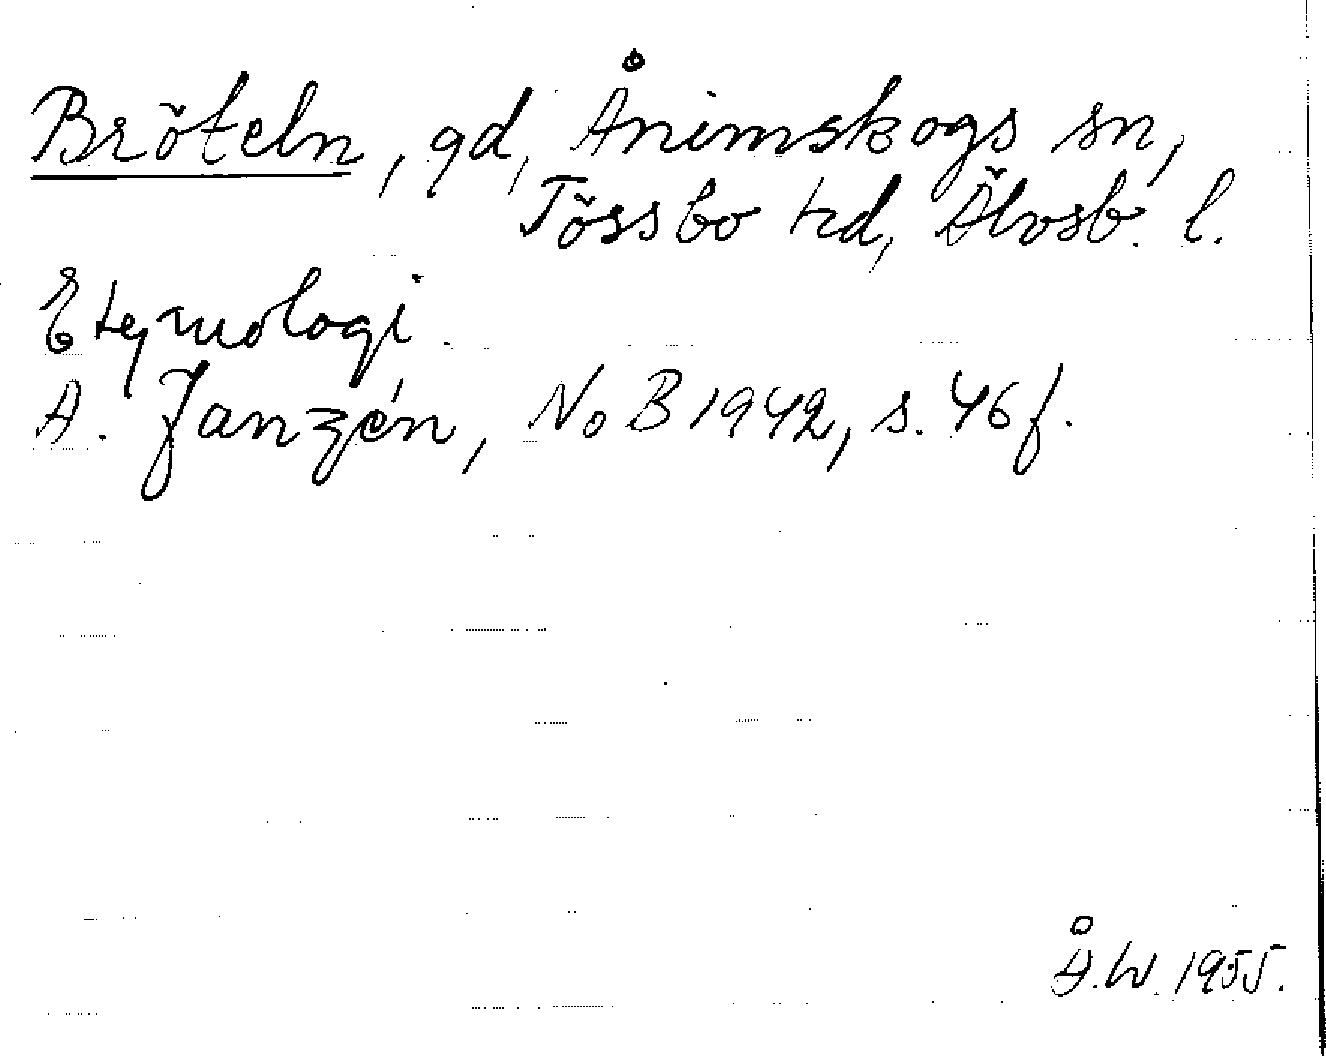 Bröteln, gd, Ånimskogs sn,
Tössbo hd, Älvsb. l.
Etymologi.
A. Janzén, NoB 1942, s. 46 f.
Å.W. 1955.